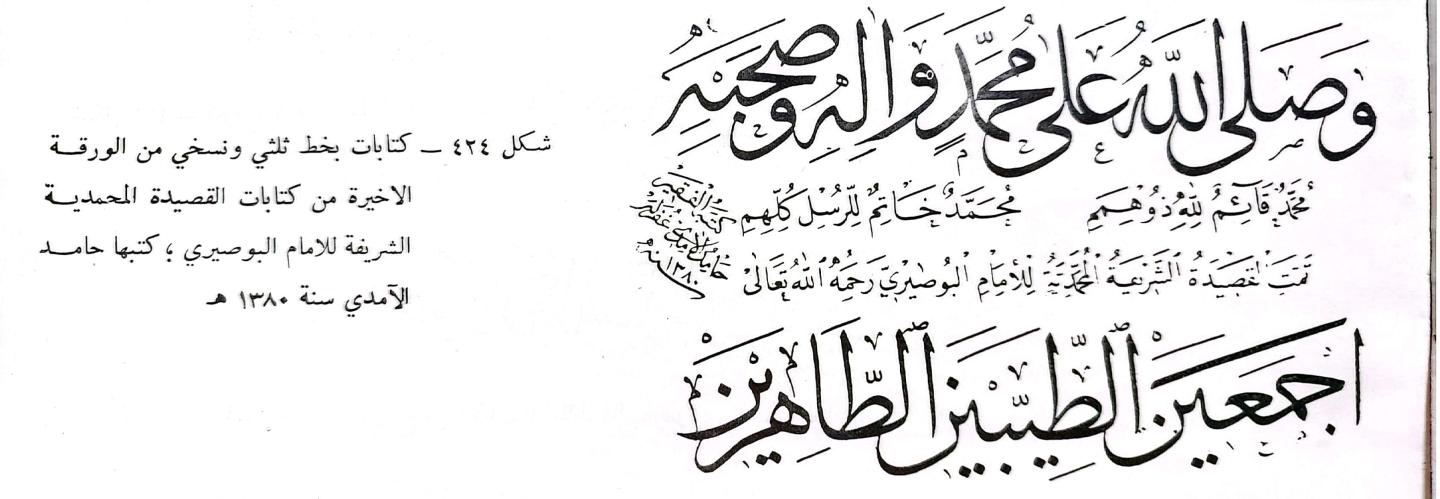 وَصَلَّى اللّٰهُ عَلٰى مُحَمَّدٍ وَاٰلِهِ وَصَحْبِهِ
مُحَمَّدٌ قَائِمٌ لِلّٰهِ ذُو هِمَمٍ مُحَمَّدٌ خَاتِمٌ لِلرُّسْلِ كُلِّهِمِ
تَمَّتِ الْقَصِيدَةُ الشَّرِيفَةُ الْمُحَمَّدِيَّةُ لِلْاِمَامِ الْبُوصِيرِيِّ رَحِمَهُ اللّٰهُ تَعَالٰى
كتبه الفقير
حامد الآمدي غفر له
سنة ١٣٨٠
اَجْمَعِينَ الطَّيِّبِينَ الطَّاهِرِينَ
شكل ٤٢٤ – كتابات بخط ثلثي ونسخي من الورقة
الاخيرة من كتابات القصيدة المحمدية
الشريفة للامام البوصيري ؛ كتبها حامد
الآمدي سنة ١٣٨٠ هـ